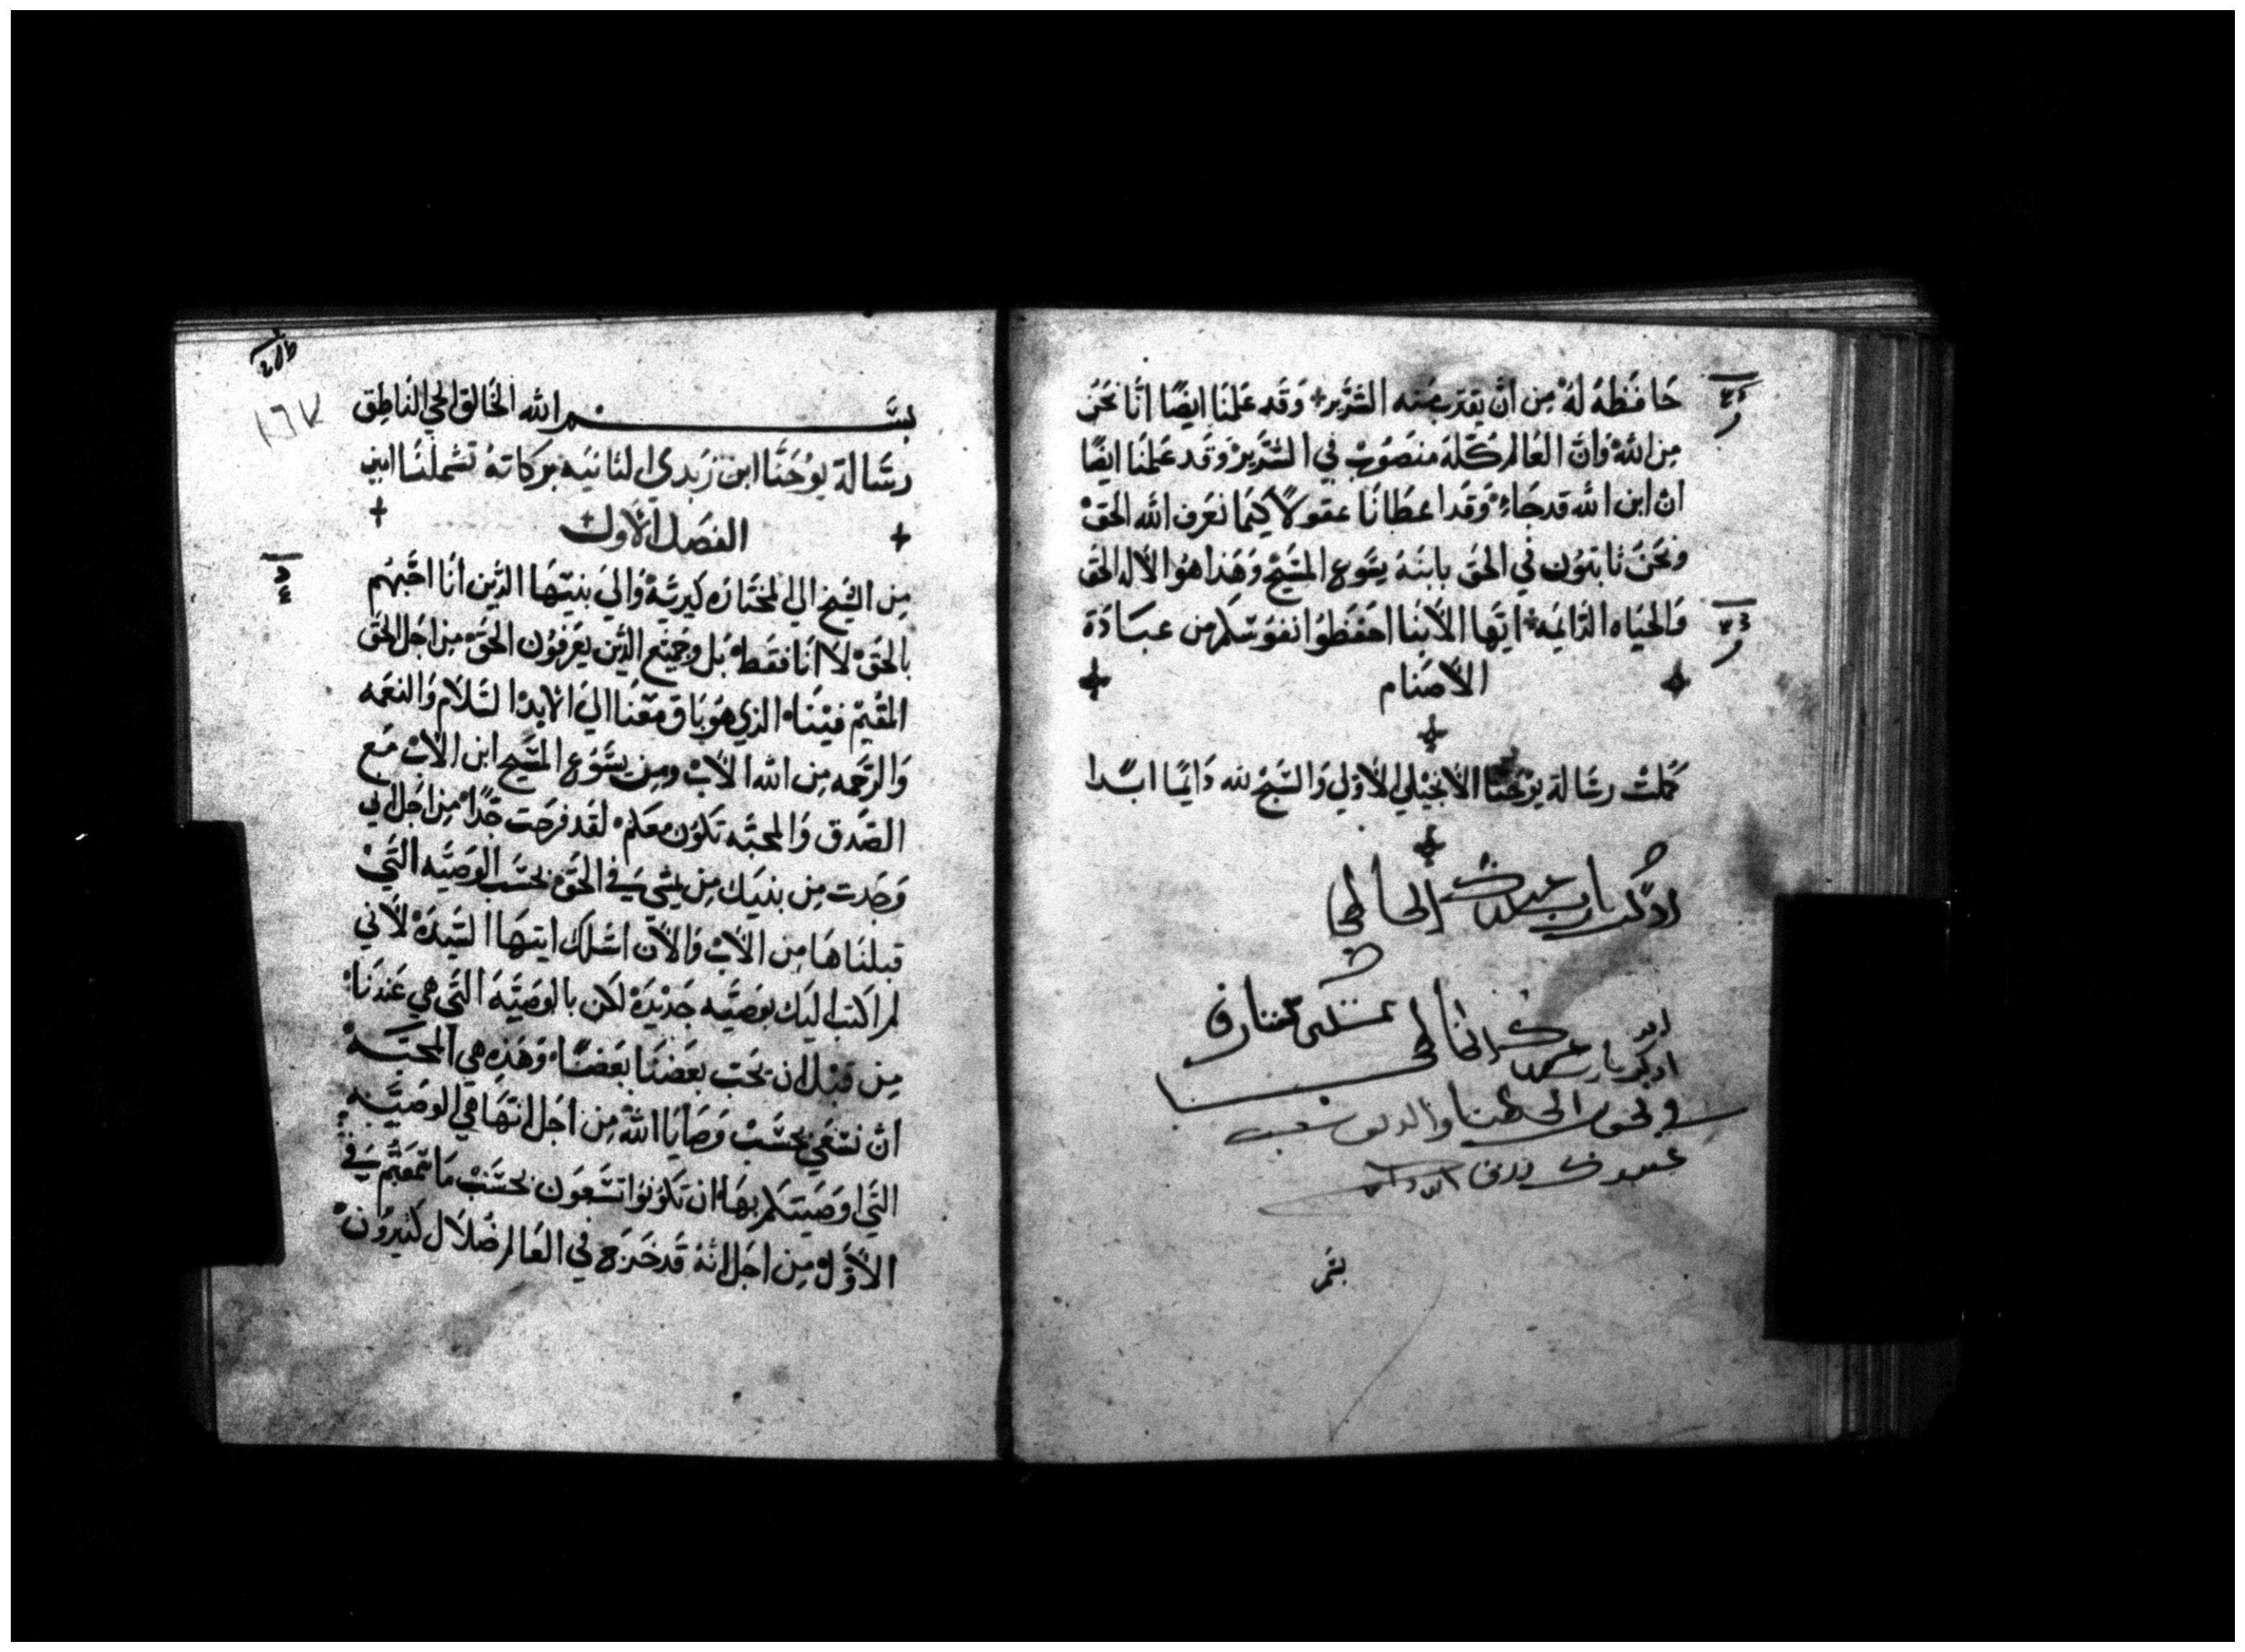 حافظه له من ان يقترب منه الشرير وقد علمنا ايضًا انا نحن
من الله وان العالم كله منصوب في الشرير وقد علمنا ايضًا
ان ابن الله قد جاء وقد اعطانا عقولاً كيما نعرف الله الحق
ونحن ثابتون في الحق بابنه يسوع المسيح وهذا هو الاله الحق
والحياه الدايمه ايها الابنا احفظوا نفوسكم من عبادة
الاصنام
كملت رسالة يوحنا الانجيلي الاولي والسبح لله دايمًا ابدا
اذكر يارب عبدك الخاطي
اذكر يارب عبدك الخاطي
عبدك
بسم الله الخالق الحي الناطق
رسالة يوحنا ابن زبدي الثانيه بركاته تشملنا امين
الفصل الاول
من الشيخ الي المختاره كيريه والي بنيها الذين انا احبهم
بالحق لا انا فقط بل وجميع الذين يعرفون الحق من اجل الحق
المقيم فينا الذي هو باق معنا الي الابد السلام والنعمه
والرحمه من الله الاب ومن يسوع المسيح ابن الاب مع
الصدق والمحبه تكون معكم لقد فرحت جدًا من اجل اني
وجدت من بنيك من يمشي في الحق بحسب الوصيه التي
قبلناها من الاب والان اسلك ايتها السيده لاني
لم اكتب اليك بوصيه جديده لكن بالوصيه التي هي عندنا
من قبل ان نحب بعضنا بعضًا وهذه هي المحبه
ان نسعي بحسب وصايا الله من اجل انها هي الوصيه
التي اوصيتكم بها ان تكونوا تسعون بحسب ما سمعتم في
الاول من اجل انه قد خرج في العالم ضلال كثيرون